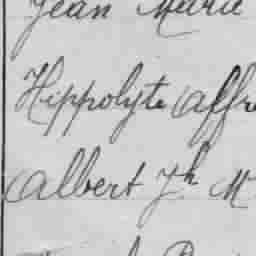 Jean Marie
Hippolyte Affre
Albert Jh M